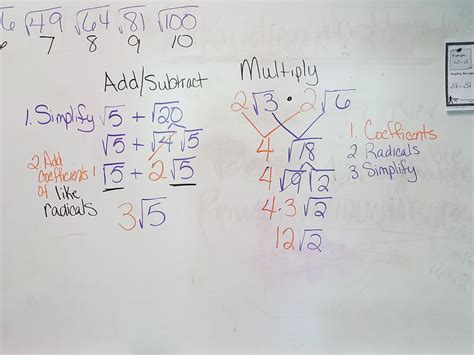 6 √49 √64 √81 √100
6 7 8 9 10
Add/Subtract
1. Simplify √5 + √20
√5 + √4√5
2 Add Coefficients of like radicals
1√5 + 2√5
3√5
Multiply
2√3 • 2√6
4 √18
4 √9√2
4•3√2
12√2
1 Coefficents
2 Radicals
3 Simplify